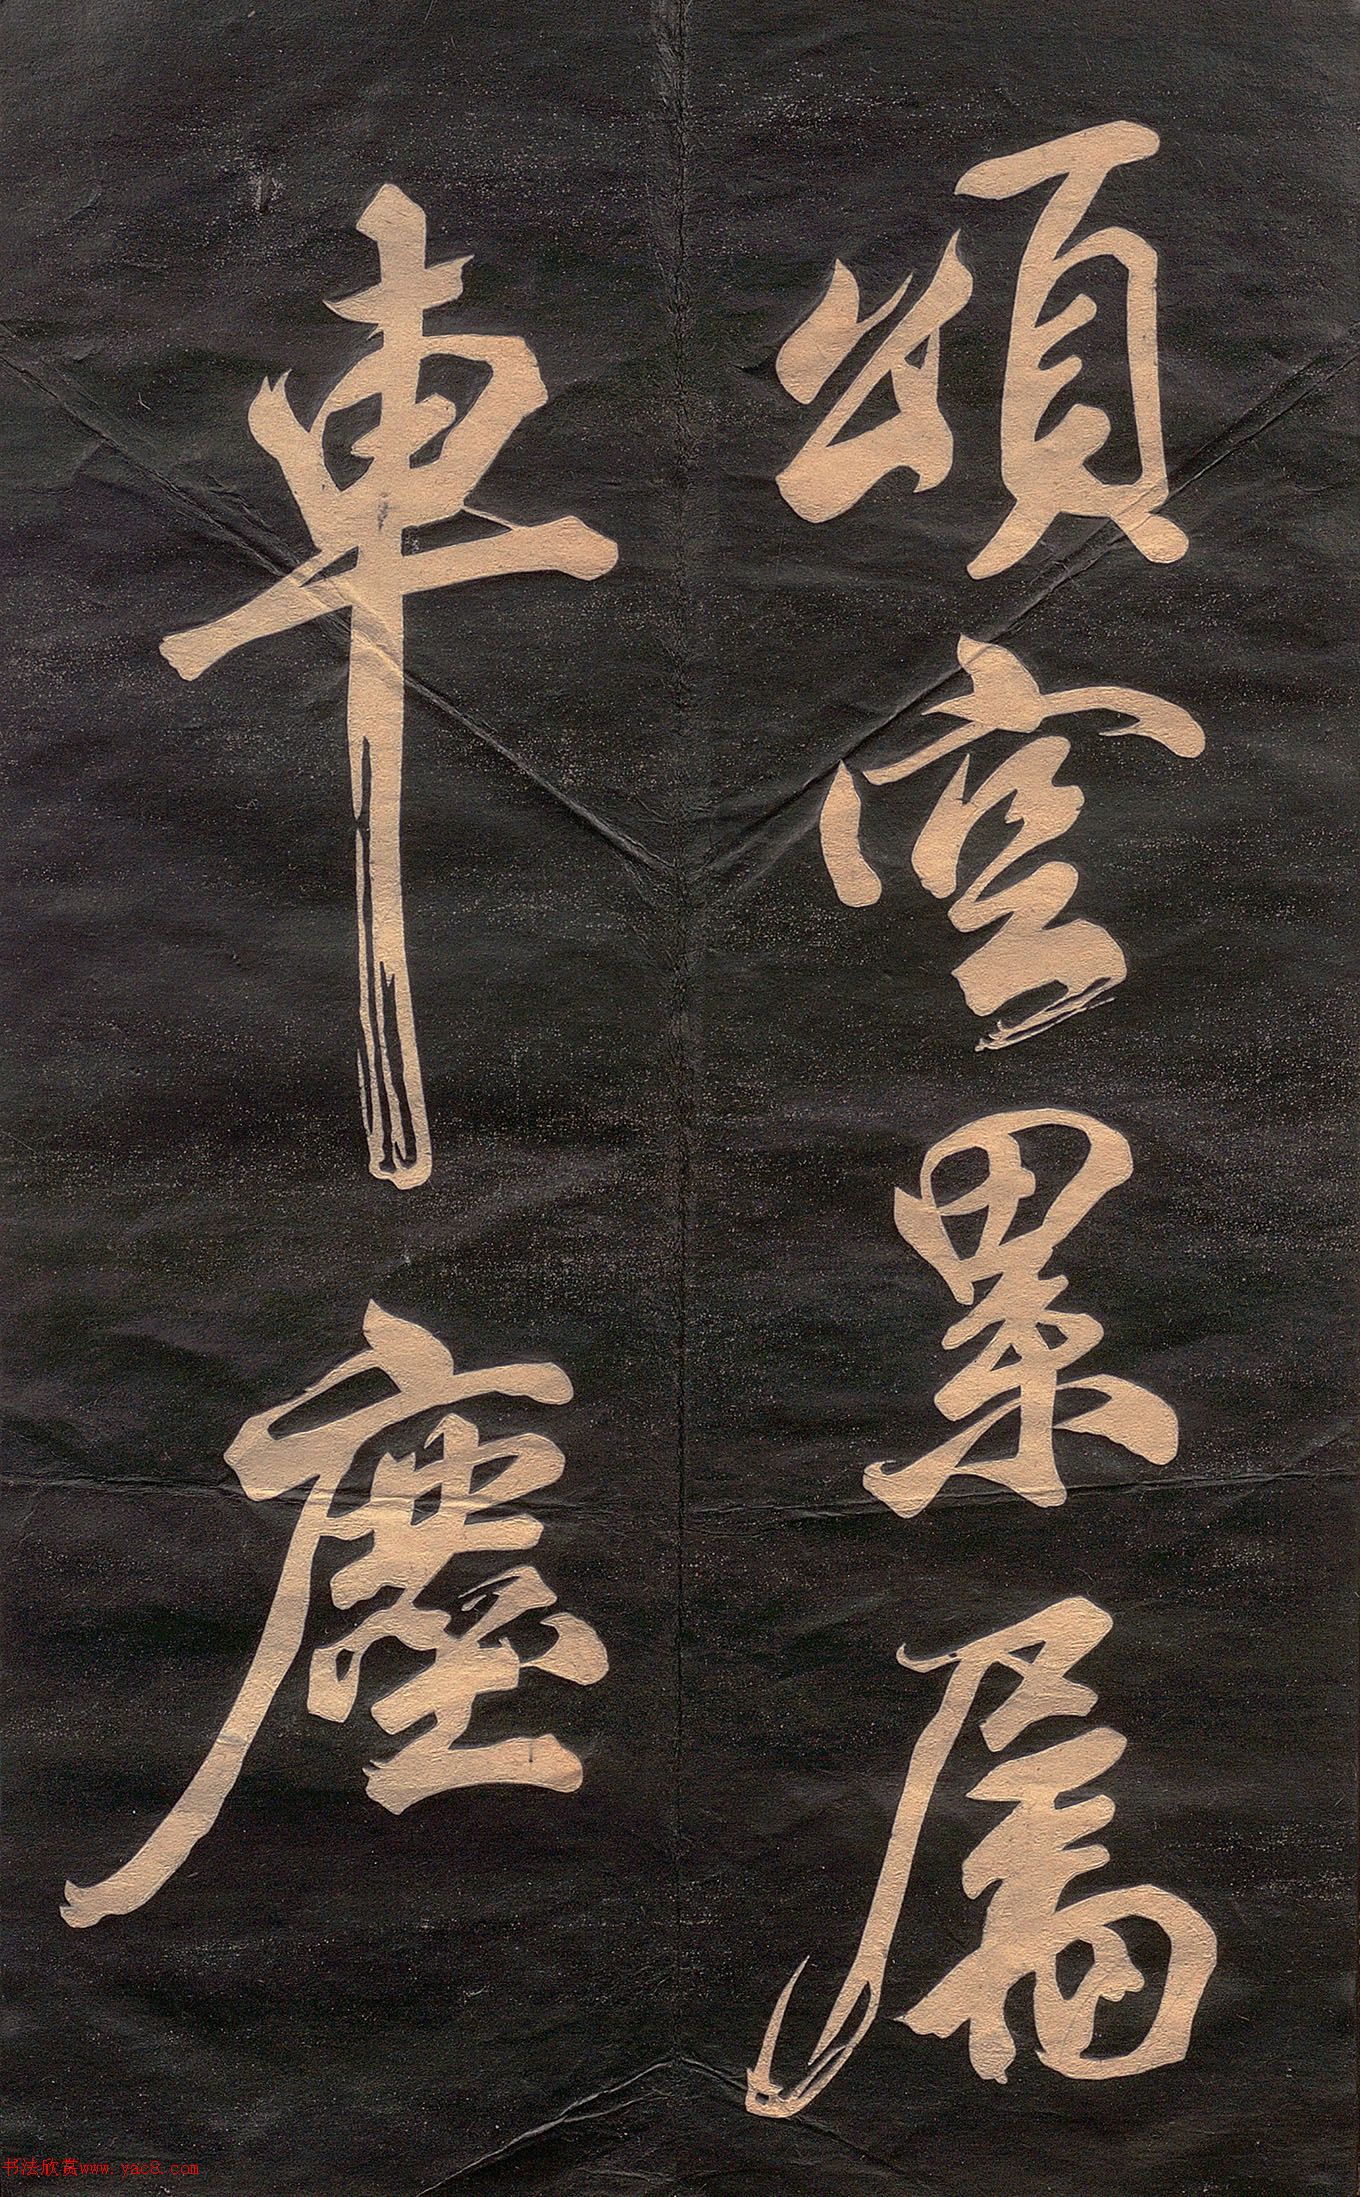 頌累屬
車塵
书法欣赏www.yac8.com